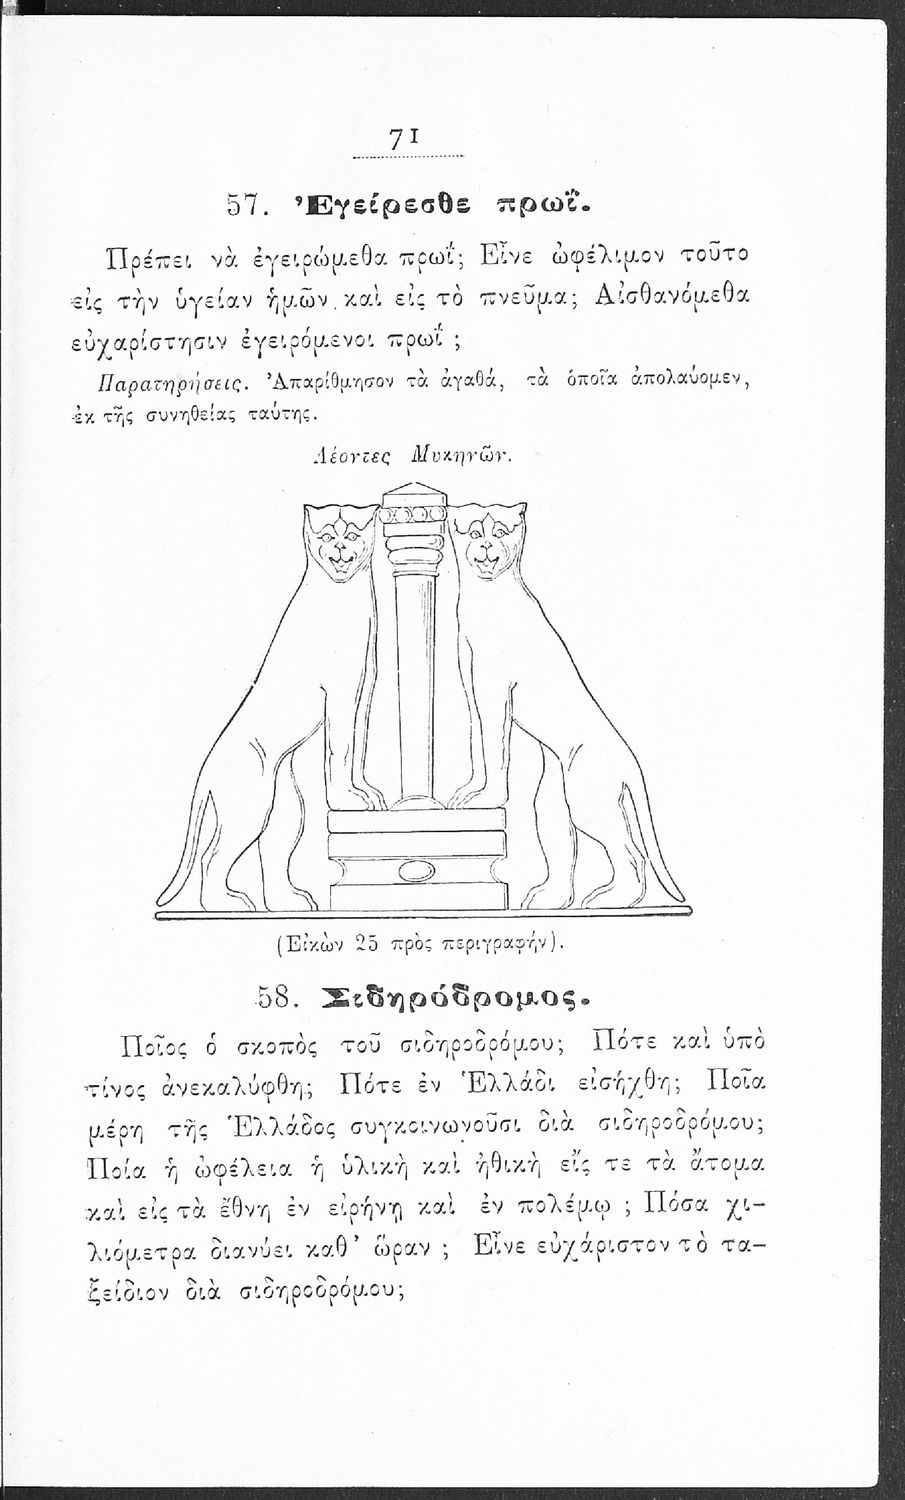 71
57. Ἐγείρεσθε πρωΐ.
Πρέπει νὰ ἐγειρώμεθα πρωΐ; Εἶνε ὠφέλιμον τοῦτο
εἰς τὴν ὑγείαν ἡμῶν καὶ εἰς τὸ πνεῦμα; Αἰσθανόμεθα
εὐχαρίστησιν ἐγειρόμενοι πρωΐ ;
Παρατηρήσεις. Ἀπαρίθμησον τὰ ἀγαθά, τὰ ὁποῖα ἀπολαύομεν,
ἐκ τῆς συνηθείας ταύτης.
Λέοντες Μυκηνῶν.
(Εἰκὼν 25 πρὸς περιγραφήν).
58. Σιδηρόδρομος.
Ποῖος ὁ σκοπὸς τοῦ σιδηροδρόμου; Πότε καὶ ὑπὸ
τίνος ἀνεκαλύφθη; Πότε ἐν Ἑλλάδι εἰσήχθη; Ποῖα
μέρη τῆς Ἑλλάδος συγκοινωνοῦσι διὰ σιδηροδρόμου;
Ποία ἡ ὠφέλεια ἡ ὑλικὴ καὶ ἠθικὴ εἴς τε τὰ ἄτομα
καὶ εἰς τὰ ἔθνη ἐν εἰρήνῃ καὶ ἐν πολέμῳ ; Πόσα χι-
λιόμετρα διανύει καθ’ ὥραν ; Εἶνε εὐχάριστον τὸ τα-
ξείδιον διὰ σιδηροδρόμου;